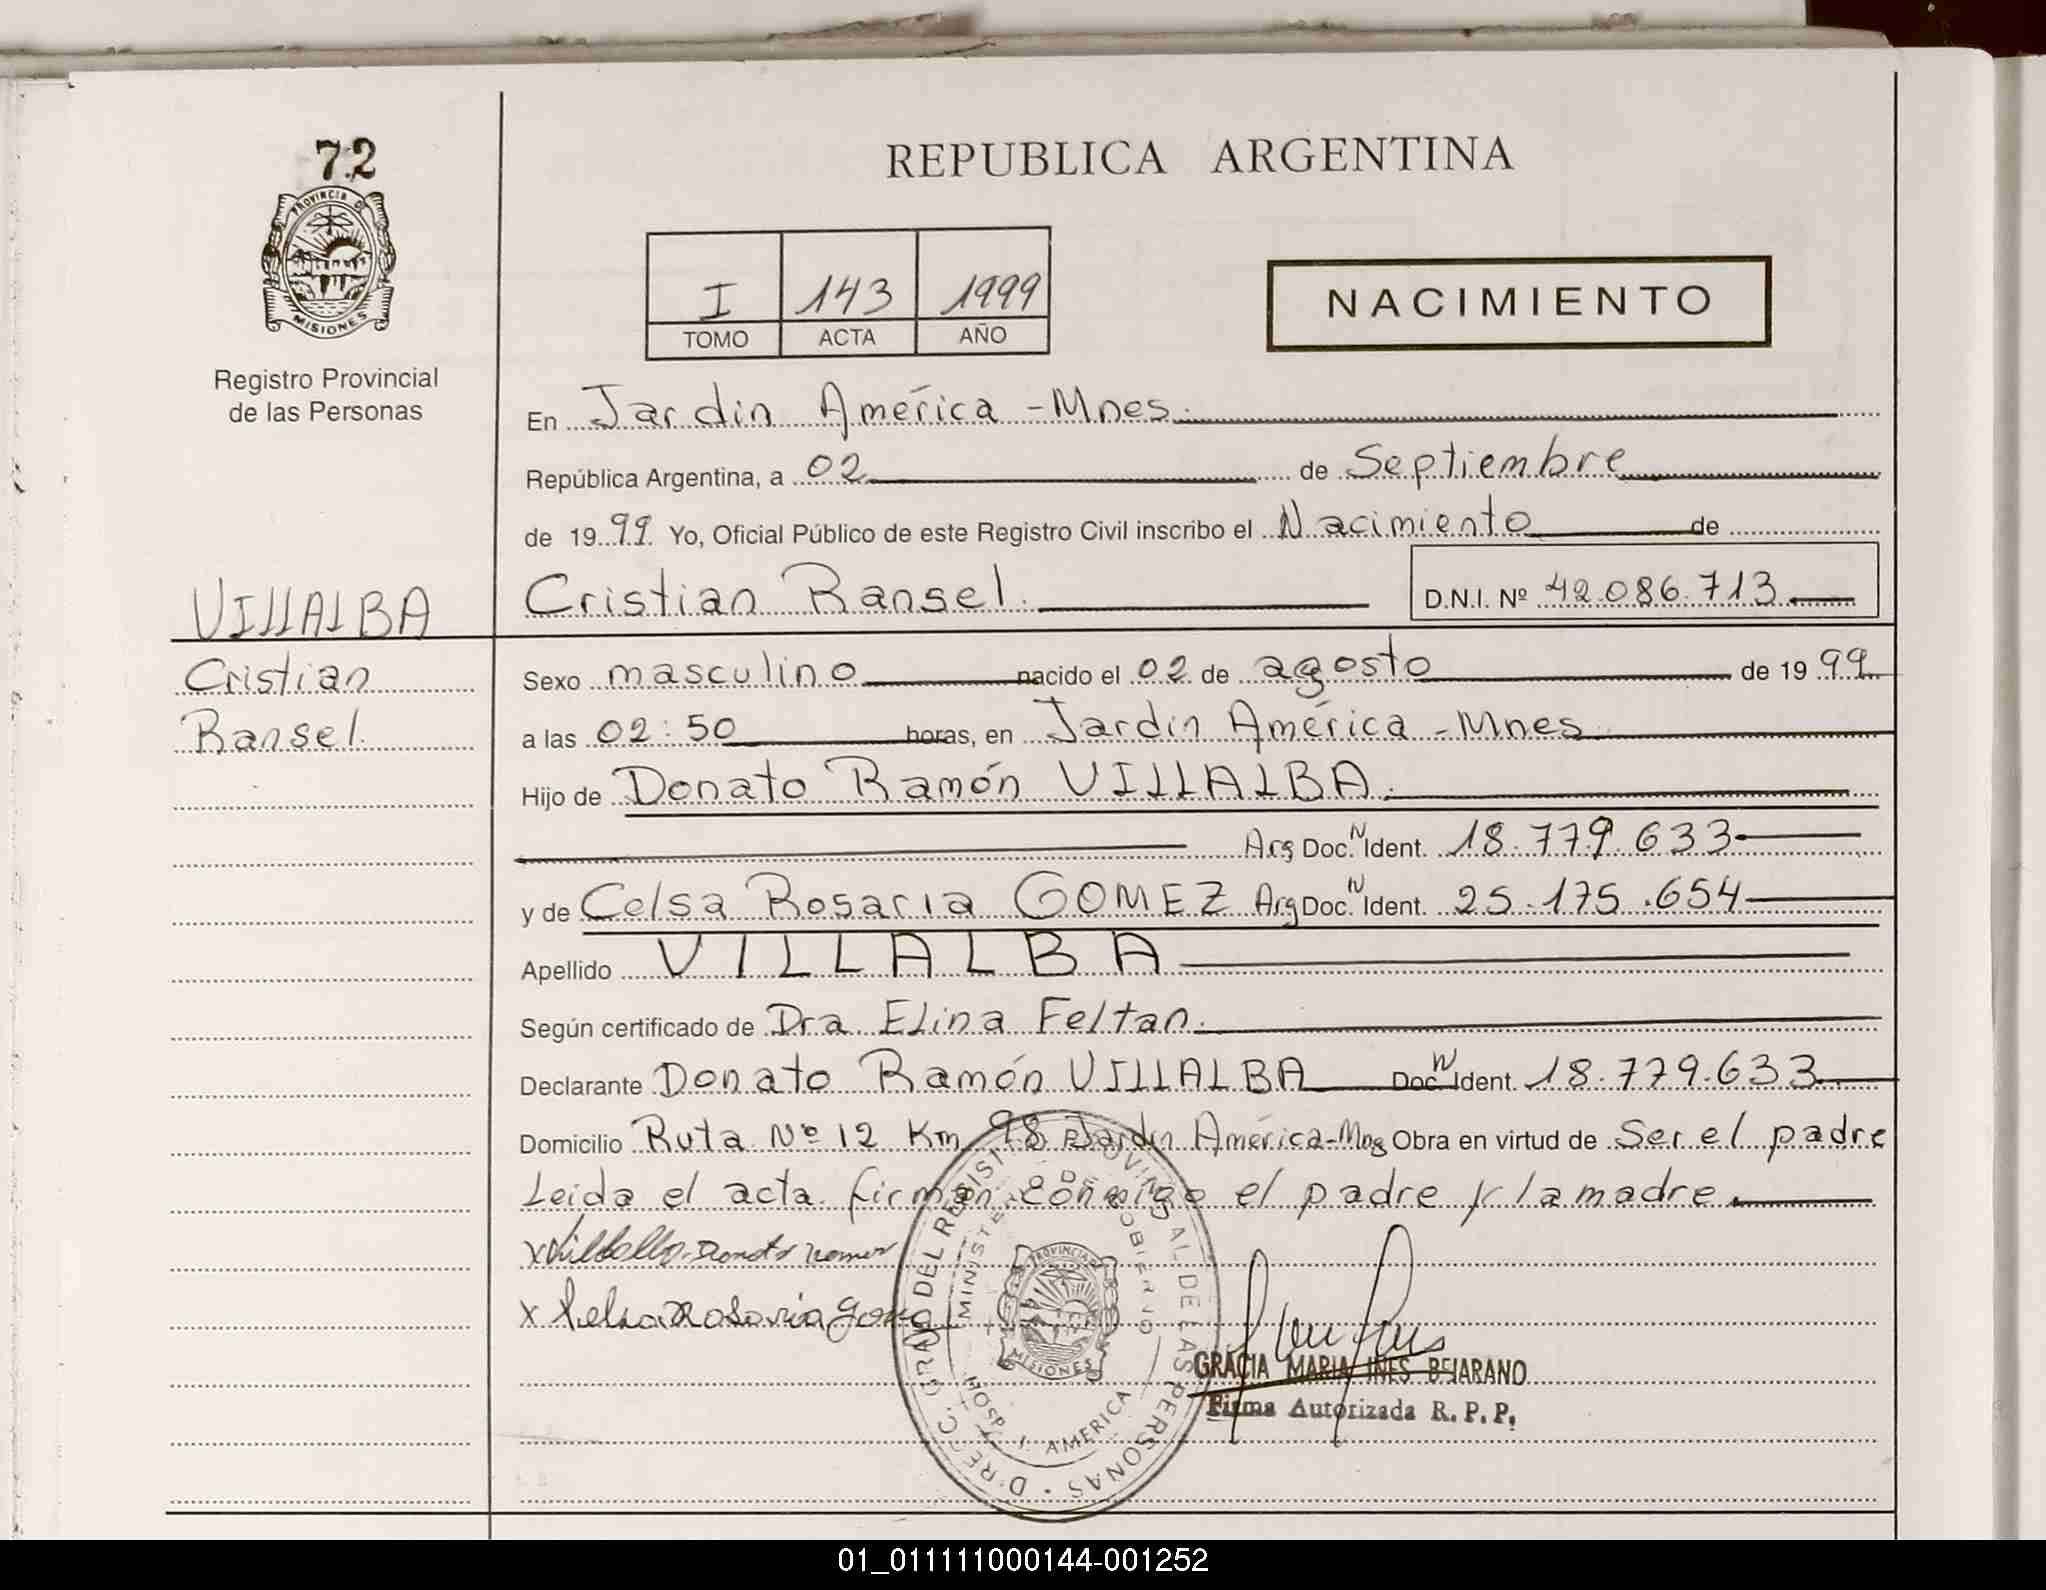 72
PROVINCIA D
MISIONES
Registro Provincial
de las Personas
REPUBLICA ARGENTINA
I 143 1999
TOMO ACTA AÑO
NACIMIENTO
En Jardin América - Mnes.
República Argentina, a 02 de Septiembre
de 1999. Yo, Oficial Público de este Registro Civil inscribo el Nacimiento de
Cristian Ransel. D.N.I. Nº 42.086.713
VILLALBA
Cristian
Ransel.
Sexo masculino nacido el 02 de agosto de 1999
a las 02:50 horas, en Jardin América - Mnes
Hijo de Donato Ramón VILLALBA.
Arg Doc. N Ident. 18.779.633
y de Celsa Rosaria GOMEZ Arg Doc. N Ident. 25.175.654
Apellido VILLALBA
Según certificado de Dra Elina Feltan.
Declarante Donato Ramón VILLALBA Doc. N Ident. 18.779.633
Domicilio Ruta Nº 12 Km 98 Jardin América - Mns Obra en virtud de Ser el padre
Leida el acta firman conmigo el padre y la madre.
x Villalba Donato Ramon
x Celsa Rosaria Gomez
DIRECC. GRAL. DEL REGISTRO PROVINCIAL DE LAS PERSONAS
MINISTERIO DE GOBIERNO
PROVINCIA
MISIONES
HOSP. J. AMERICA
GRACIA MARIA INES BEJARANO
Firma Autorizada R. P. P.
01_011111000144-001252